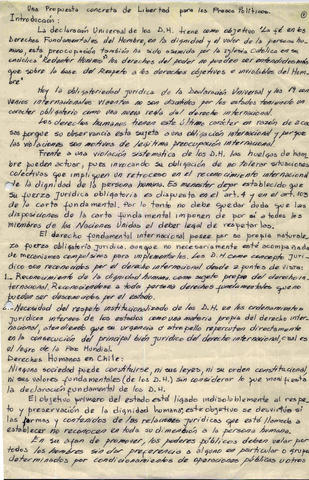 Una Propuesta concreta de Libertad para los Presos Políticos.
Introducción:
La declaración Universal de los D.H. tiene como objetivo la fé en los
Derechos Fundamentales del Hombre, en la dignidad y el valor de la persona hu-
mana, esta preocupación también ha sido asumida por la Iglesia Católica en su
encíclica Redentor Hominis "los derechos del poder no pueden ser entendidos más
que sobre la base del Respeto a los derechos objetivos e inviolables del Hom-
bre"
Hoy la obligatoriedad jurídica de la Declaración Universal y los 19 con-
venios internacionales vigentes no son discutidos por los estados teniendo un
carácter obligatorio como una nueva regla del derecho internacional.
Los derechos humanos tienen este último carácter en razón de
que su observancia esta sujeta a una obligación internacional y porque
las violaciones son motivos de legítima preocupación internacional.
Frente a una violación sistemática de los D.H. las huelgas de hambre
pueden actuar, pues invocando su obligación de no tolerar situaciones
colectivas que impliquen un retroceso en el reconocimiento internacional
de la dignidad de la persona humana. Es menester dejar establecido que
su fuerza jurídica obligatoria es dispuesta en el art. 1 y en el art.
de la carta fundamental. Por lo tanto no debe quedar duda que las
disposiciones de la carta fundamental imponen de por sí a todos los
miembros de las Naciones Unidas el deber legal de respetarlos.
El derecho fundamental internacional posee por su propia naturale-
za fuerza obligatoria jurídica, aunque no necesariamente esté acompañada
de mecanismos compulsivos para implementarlos. Los D.H. como concepto jurí-
dico son reconocidos por el derecho internacional desde 2 puntos de vista:
Reconocimiento de la dignidad humana como sujeto propio del derecho in-
ternacional. Reconociéndose a toda persona derechos fundamentales que no
pueden ser desconocidos por el estado.
Necesidad del respeto institucionalizado de los D.H. en los ordenamientos
jurídicos internos de los estados como una materia propia del derecho inter-
nacional, atendiendo que su urgencia o atropello repercuten directamente
en la consecución del principal bien jurídico del derecho internacional, cual es
el logro de la Paz Mundial.
Derechos Humanos en Chile:
Ninguna sociedad puede constituirse, ni sus leyes, ni su orden constitucional,
ni sus valores fundamentales (de los D.H.) sin considerar lo que manifiesta
la declaración fundamental de los D.H.
El objetivo primero del estado está ligado indisolublemente al respe-
to y preservación de la dignidad humana, este objetivo se desvirtúa si
las formas y contenidos de las relaciones jurídicas que está llamado a
establecer no reconocen en toda su dimensión a la persona humana.
En su afán de promover, los poderes públicos deben velar por
todos los hombres sin dar preferencia a alguno en particular o grupos
determinados por condicionamientos de operaciones públicas u otros